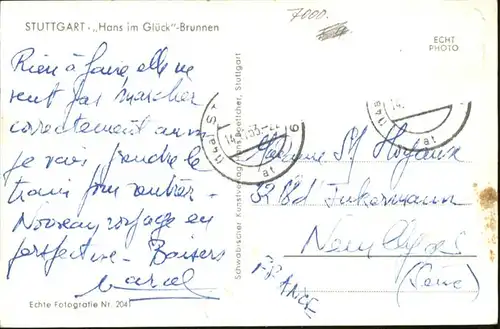 STUTTGART · „Hans im Glück"-Brunnen
7000.
ECHT
PHOTO
Rien à faire elle ne
veut pas marcher
correctement aussi
je vais prendre le
train pour rentrer.
Nouveau voyage en
perspective - Baisers
Marcel
Echte Fotografie Nr. 204
Schwäbischer Kunstverlag Hans Boettcher, Stuttgart
(14a) S
14.
53.-2
at
(14a)
14.
at
32 Bd Inkermann
Neuilly
(Seine)
FRANCE